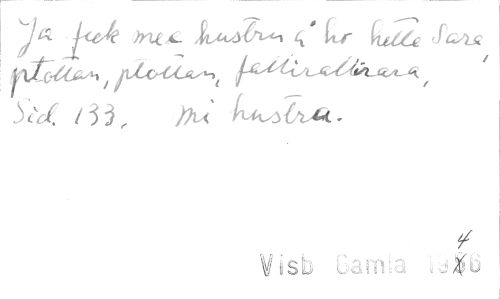 Ja fick mea hustru å ho hette Sara,
ptottan, ptottan, fallirallirara,
Sid. 133. Mi hustra.
4
Visb Gamla 1966